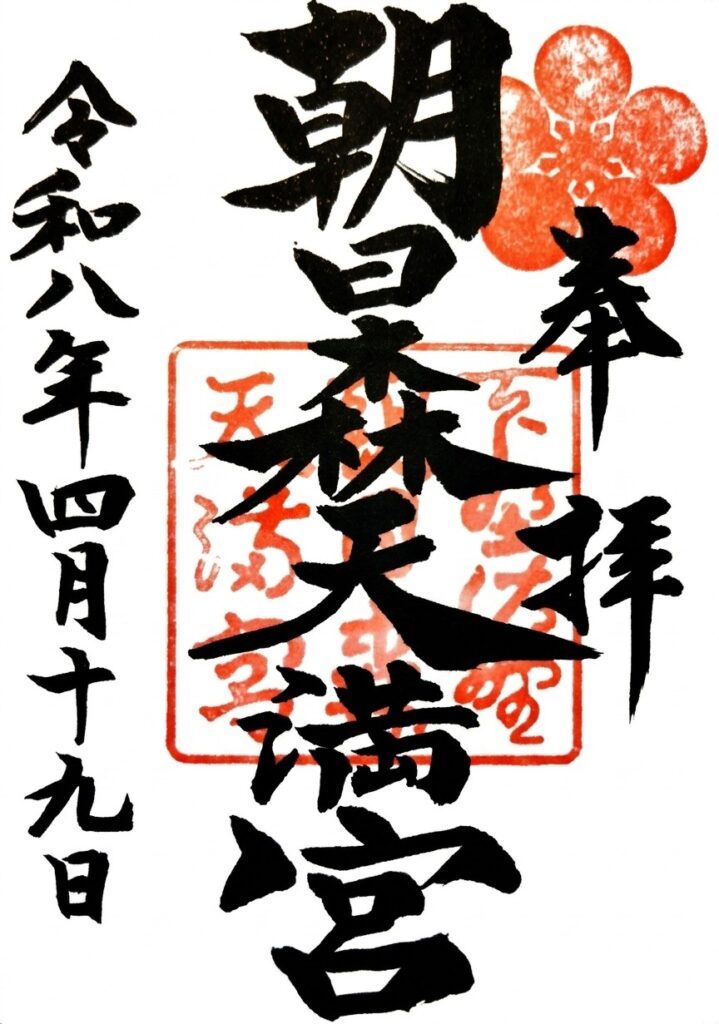 奉拝
朝日森天満宮
令和八年四月十九日
下野佐野
天満宮